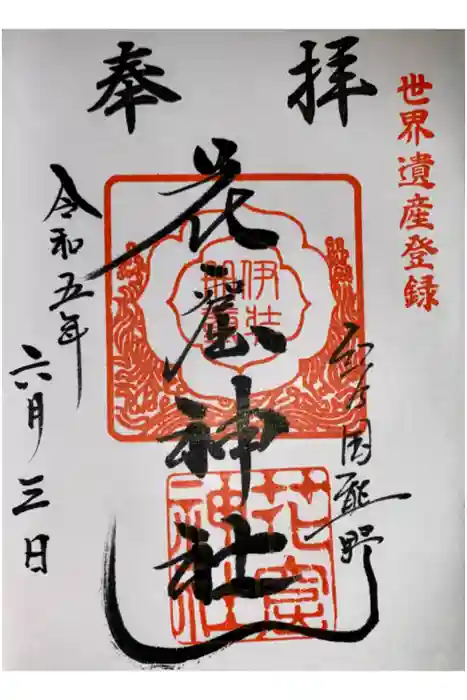 世界遺産登録
奉拝
紀伊国熊野
花窟神社
令和五年
六月三日
伊弉
冊尊
花窟
神社